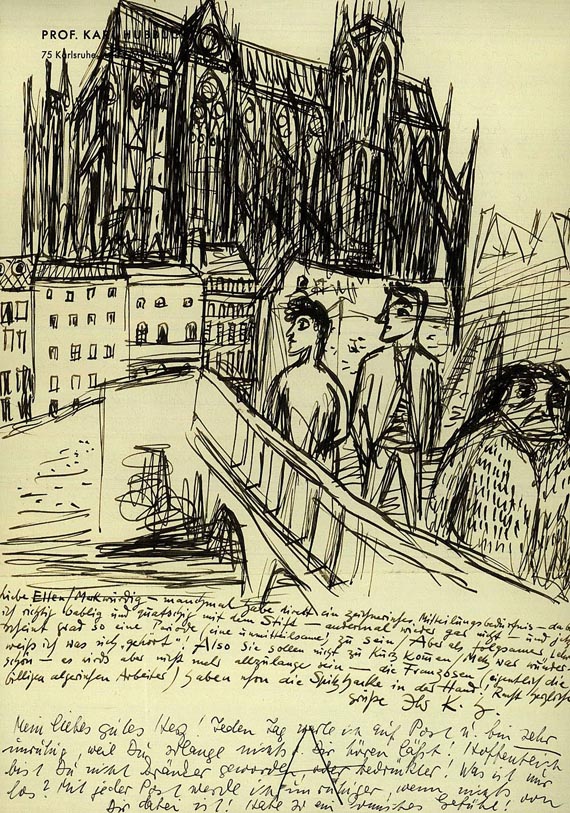 PROF. KARL HUBBUCH
75 Karlsruhe
Liebe Merkwürdig – manchmal habe direkt ein Mitteilungsbedürfnis – da
ich richtig bablig und quatschig mit dem Stift – andermal wieder gar nicht – und
scheint grad so eine Periode (eine zu sein. Aber als folgsamer
weiß ich was sich „gehört“! Also Sie sollen nicht zu kurz kommen / Metz war
schön – es wird aber nicht mehr allzulange sein – die Franzosen (eigentlich die
billigen algerischen Arbeiter) haben schon die Spitzhacke in der Hand! Recht herzliche
grüße Ihr K. H.
Mein liebes gutes Herz! Jeden Tag warte ich auf Post u. bin sehr
unruhig, weil Du solange nichts Dir hören läßt! Hoffentlich
bist Du nicht kränker geworden oder bedrückter! Was ist nur
los? Mit jeder Post werde ich unruhiger, wenn nichts von
Dir dabei ist! Habe so ein komisches Gefühl!